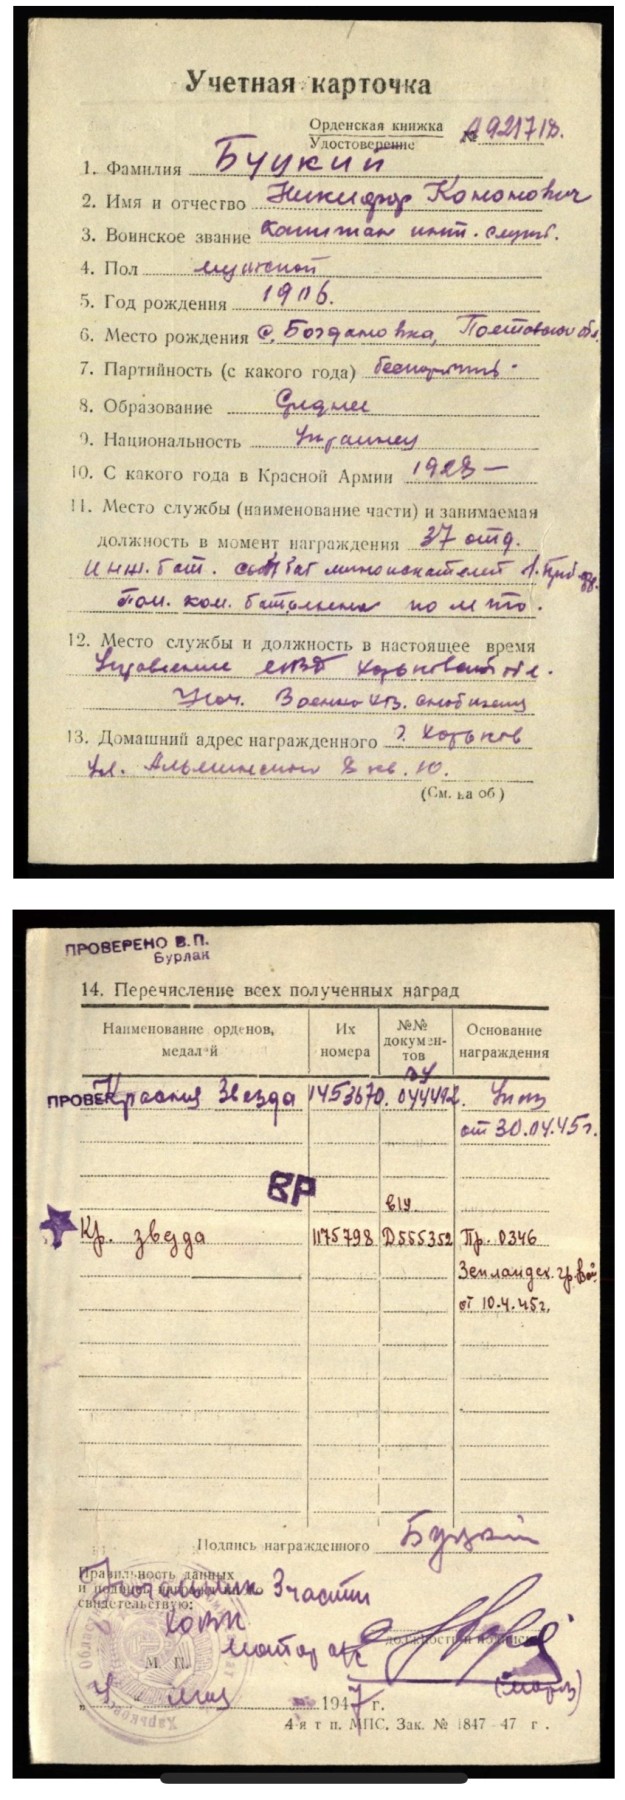 Учетная карточка
Орденская книжка
Удостоверение № А 921718.
1. Фамилия Буцкий
2. Имя и отчество Никифор Кононович
3. Воинское звание капитан инт. служб.
4. Пол мужской
5. Год рождения 1906.
6. Место рождения с. Богдановка, Полтавской обл.
7. Партийность (с какого года)
8. Образование Среднее
9. Национальность Украинец
10. С какого года в Красной Армии 1928 —
11. Место службы (наименование части) и занимаемая
должность в момент награждения 37 отд.
инж. бат. миноискателей 1. Приб.
Пом. ком. батальона по МТО.
12. Место службы и должность в настоящее время
Управление Харьковской обл.
Нач. Военно снабжения
13. Домашний адрес награжденного г. Харьков
ул. 8 кв. 10.
(См. на об)
ПРОВЕРЕНО В.П.
Бурлак
14. Перечисление всех полученных наград
Наименование орденов, медалей
Их номера
№№ документов
Основание награждения
ПРОВЕ Красная Звезда 1453670. 044492. Указ
от 30.04.45г.
ВР
в/у
Кр. звезда 1175798 D555352 Пр. 0346
Земландск. гр. вой.
от 10.4.45г.
Подпись награжденного Буцкий
Правильность данных
и подпись
свидетельствую:
Начальник 3 части
майор
должность и подпись
М. П.
(Мороз)
" 4 мая 1947 г.
4-я тип. МПС, Зак. № 1847—47 г.